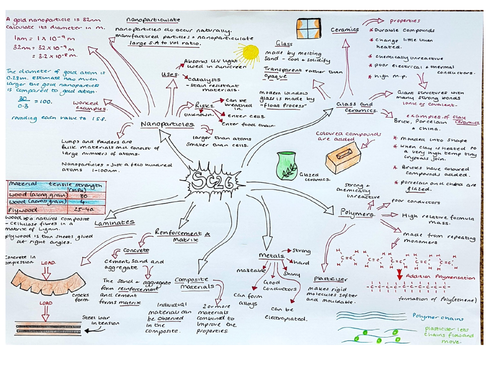 A gold nanoparticle is 32nm
calculate its diameter in m.
1nm = 1 x 10⁻⁹ m
32nm = 32 x 10⁻⁹ m
= 3.2 x 10⁻⁸ m
Nanoparticulate
nanoparticles do occur naturally.
manufactured particles = nanoparticulate
large SA to vol ratio.
The diameter of gold atom is
larger the gold nanoparticle
is compared to gold atom.
= 100.
rounding each value to 1 s.f.
Worked
examples
Uses
Absorbs UV light
used in sunscreen
Catalysts
Risks
unknown
can be breathed in
Enter cells
Enter food chain
Nanoparticles
larger than atoms
smaller than cells.
Lumps and powders are
bulk materials and consist of
large numbers of atoms.
Nanoparticles = just a few hundred
atoms 1-100nm.
Glass
made by melting
sand - cool + solidify
Transparent rather than
opaque
modern window
glass is made by
"float process"
Ceramics
properties
Durable compounds
Change little when
heated.
chemically unreactive
poor electrical + thermal
conductors.
high m.p.
Glass and
Ceramics
Giant structures with
many strong bonds
ionic or covalent.
examples of
Ceramics
Brick, porcelain
+ china.
Mould into shape
when clay is heated to
a very high temp tiny
crystals join.
Bricks have coloured
compounds added
porcelain and china are
glazed.
Coloured compounds
are added
Glazed
ceramics
SC26
Material
tensile strength
Wood (along grain)
Plywood
Wood is a natural composite
- cellulose fibres in a
matrix of lignin.
plywood is thin sheets glued
at right angles.
Laminates
Reinforcement &
matrix
Concrete
Cement, sand and
aggregate
The sand + aggregate
form reinforcement
and cement
forms matrix
Concrete in
compression
LOAD
LOAD
Steel bar
in tension
Composite
materials
Individual
materials can
be observed
in the
composite
2 or more
materials
combined to
improve the
properties
Metals
strong
hard
shiny
malleable
Good
conductors
Can form
alloys
can be
electroplated.
Polymers
strong +
chemically
unreactive
Poor conductors
High relative formula
mass.
made from repeating
monomers
Addition Polymerisation
formation of Poly(ethene)
Plasticiser
makes rigid
molecules softer
and mouldable
Polymer chains
plasticiser lets
chains
move.